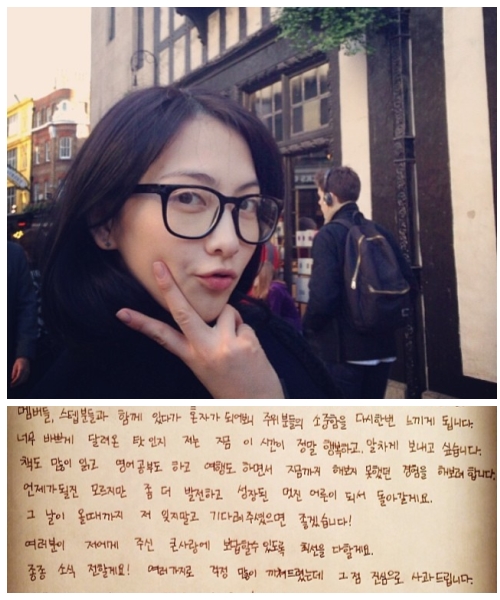 멤버들, 스텝분들과 함께 있다가 혼자가 되어보니 주위 분들의 소중함을 다시한번 느끼게 됩니다.
너무 바쁘게 달려온 탓인지 저는 지금 이 시간이 정말 행복하고, 알차게 보내고 싶습니다.
책도 많이 읽고 영어공부도 하고 여행도 하면서 지금까지 해보지 못했던 경험을 해보려 합니다.
언제가 될진 모르지만 좀 더 발전하고 성장된 멋진 어른이 되서 돌아갈게요.
그 날이 올때까지 저 잊지말고 기다려주셨으면 좋겠습니다!
여러분이 저에게 주신 큰사랑에 보답할수 있도록 최선을 다할게요.
종종 소식 전할게요! 여러가지로 걱정 많이 끼쳐드렸는데 그 점 진심으로 사과드립니다.